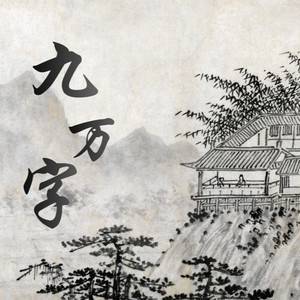 九万字